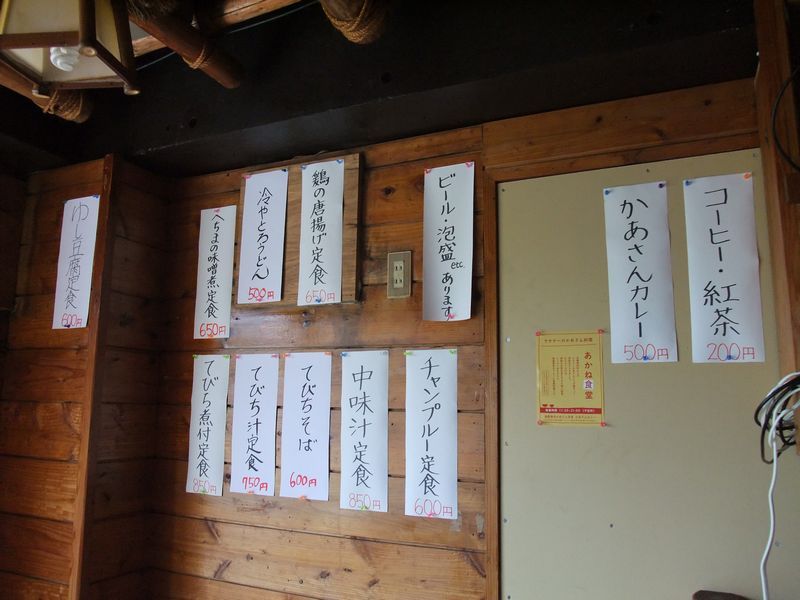 コーヒー・紅茶
200円
かあさんカレー
500円
ビール・泡盛etc.あります
鶏の唐揚げ定食
650円
冷やとろうどん
500円
へちまの味噌煮定食
650円
ゆし豆腐定食
600円
チャンプルー定食
600円
中味汁定食
850円
てびちそば
600円
てびち汁定食
750円
てびち煮付定食
850円
あかね食堂